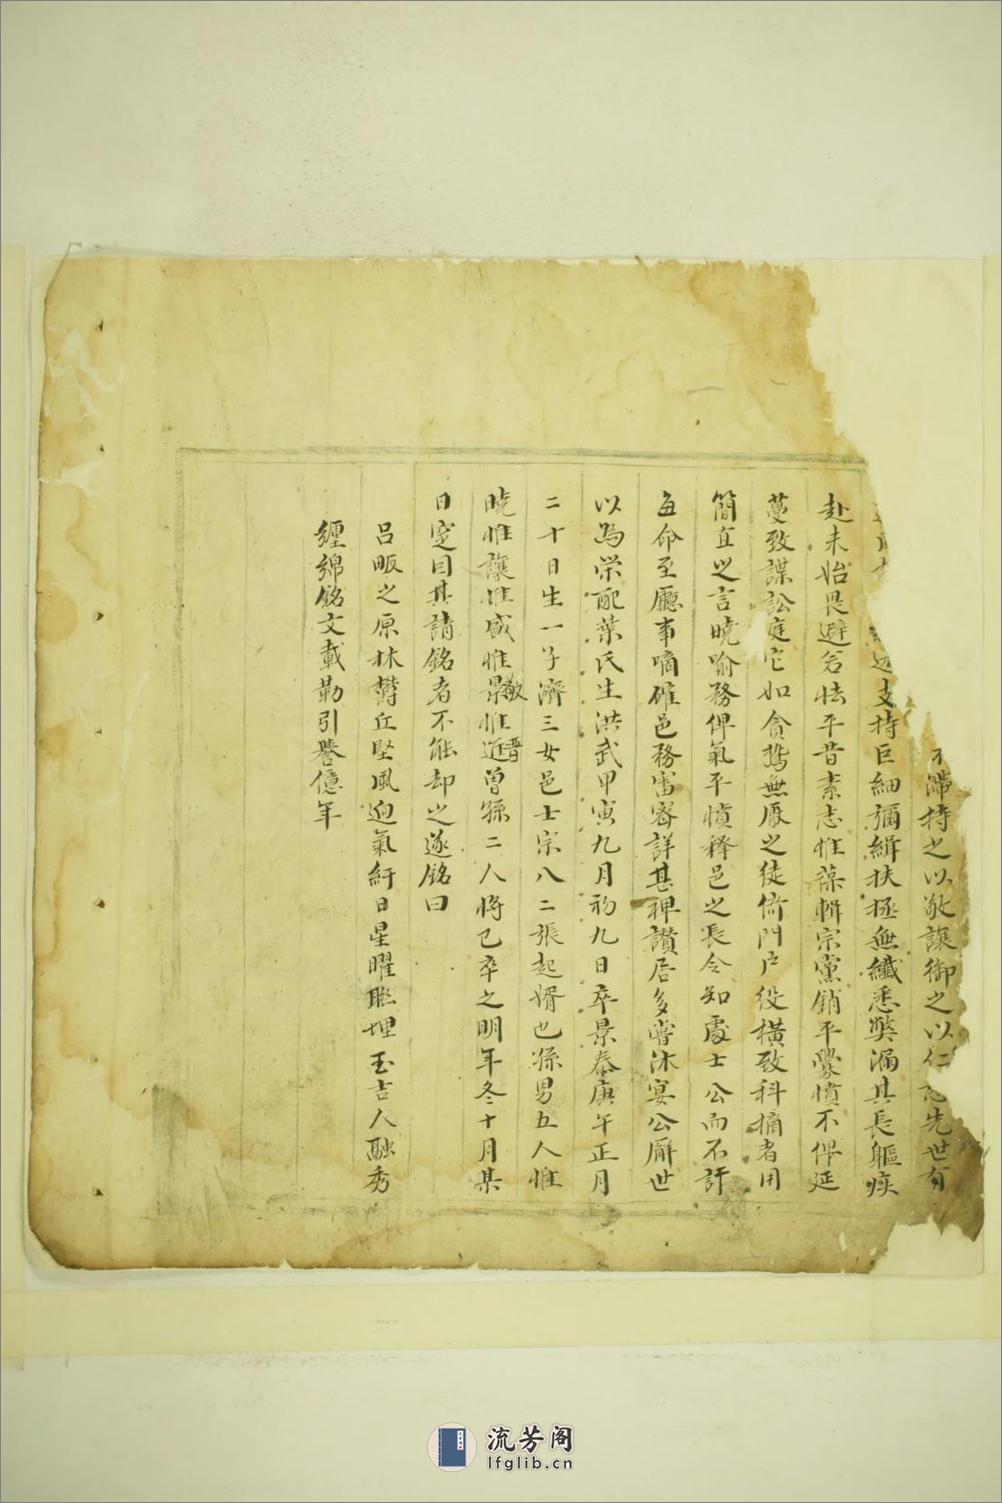 不滞持之以敬讓御之以仁 先世有
支持巨細彌緝扶拯無纖悉獘漏其長軀疾
赴未始畏避吝怯平昔素志惟葆輯宗黨銷平釁憤不俾延
蔓致謀訟庭它如貪鷙無厭之徒倚門户役横致科擿者用
簡直之言曉喻務俾氣平憤釋邑之長令知處士公而不訐
每命至廳事啇確邑務審宻詳甚裨讚居多嘗沐宴公廨世
以為荣配葉氏生洪武甲寅九月初九日卒景泰庚午正月
二十日生一子濟三女邑士宗八二張起婿也孫男五人惟
曉惟讓惟咸惟景敬惟近晋曾孫二人將已卒之明年冬十月某
日窆因其請銘者不能却之遂銘曰
吕畈之原林欝丘堅風逈氣紆日星曜聮埋玉吉人融秀
纏綿銘文載勒引譽億年
流芳阁
lfglib.cn